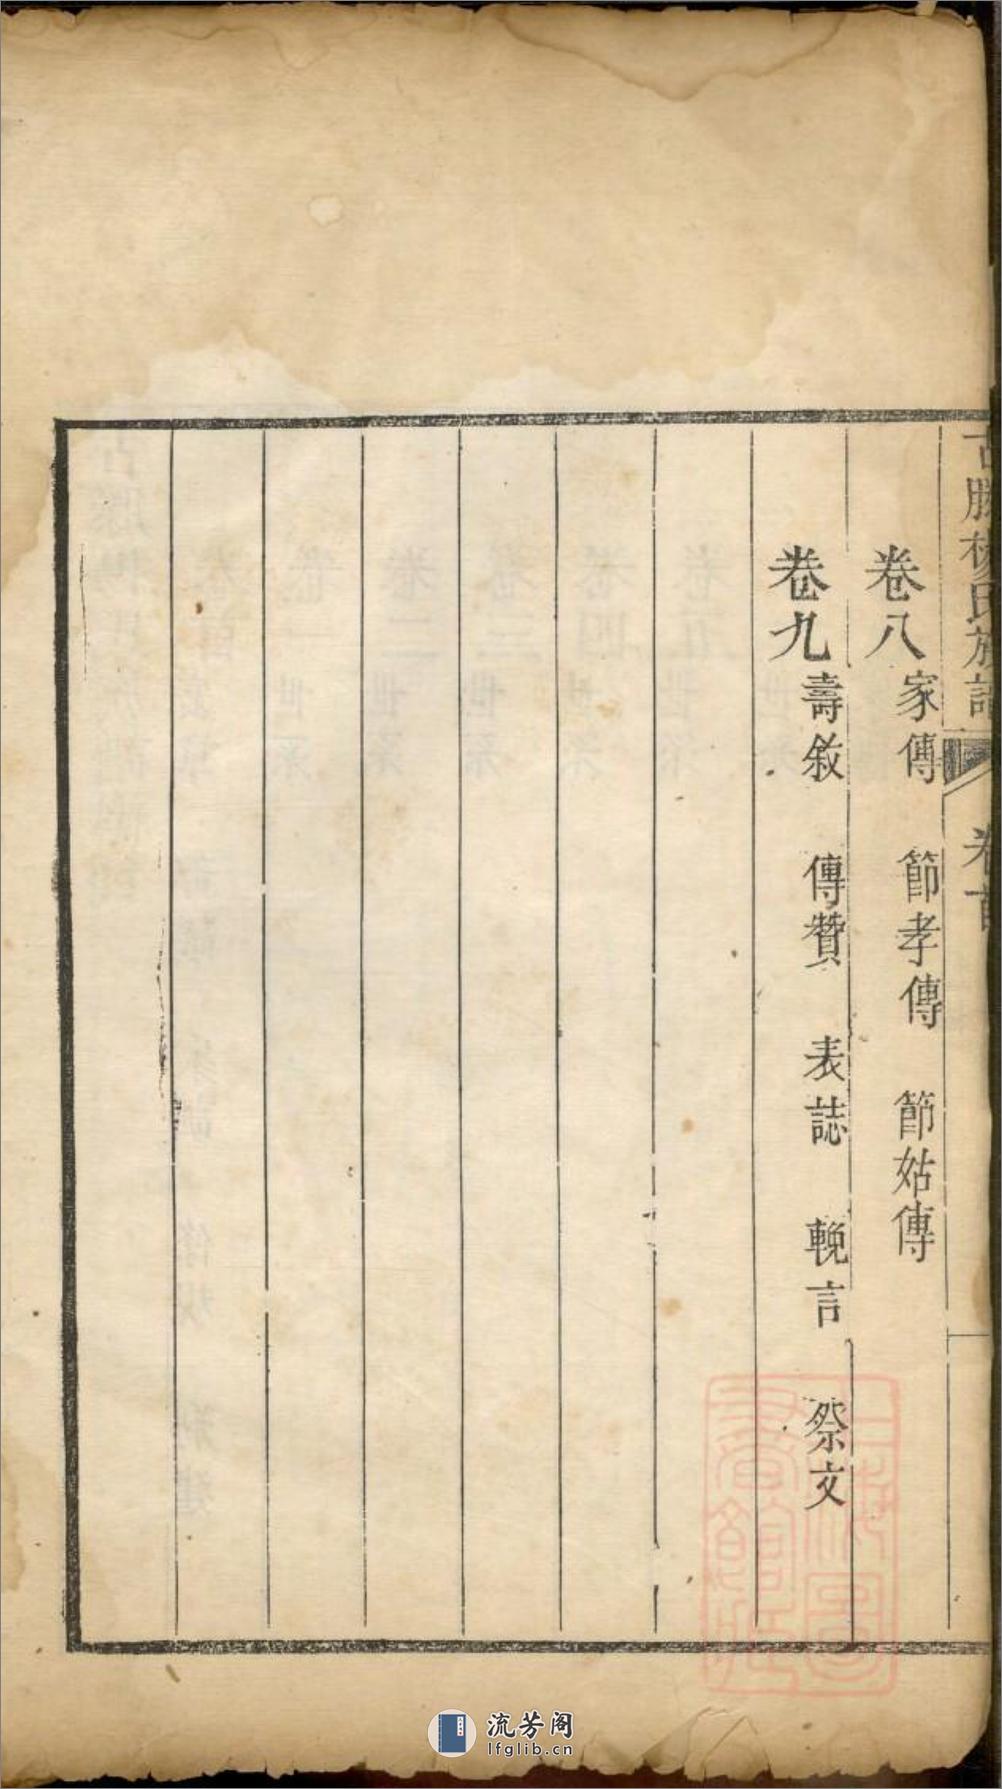 古勝楊氏族譜　卷首
卷八 家傳　節孝傳　節姑傳
卷九 壽敘　傳贊　表誌　輓言　祭文
流芳阁
lfglib.cn